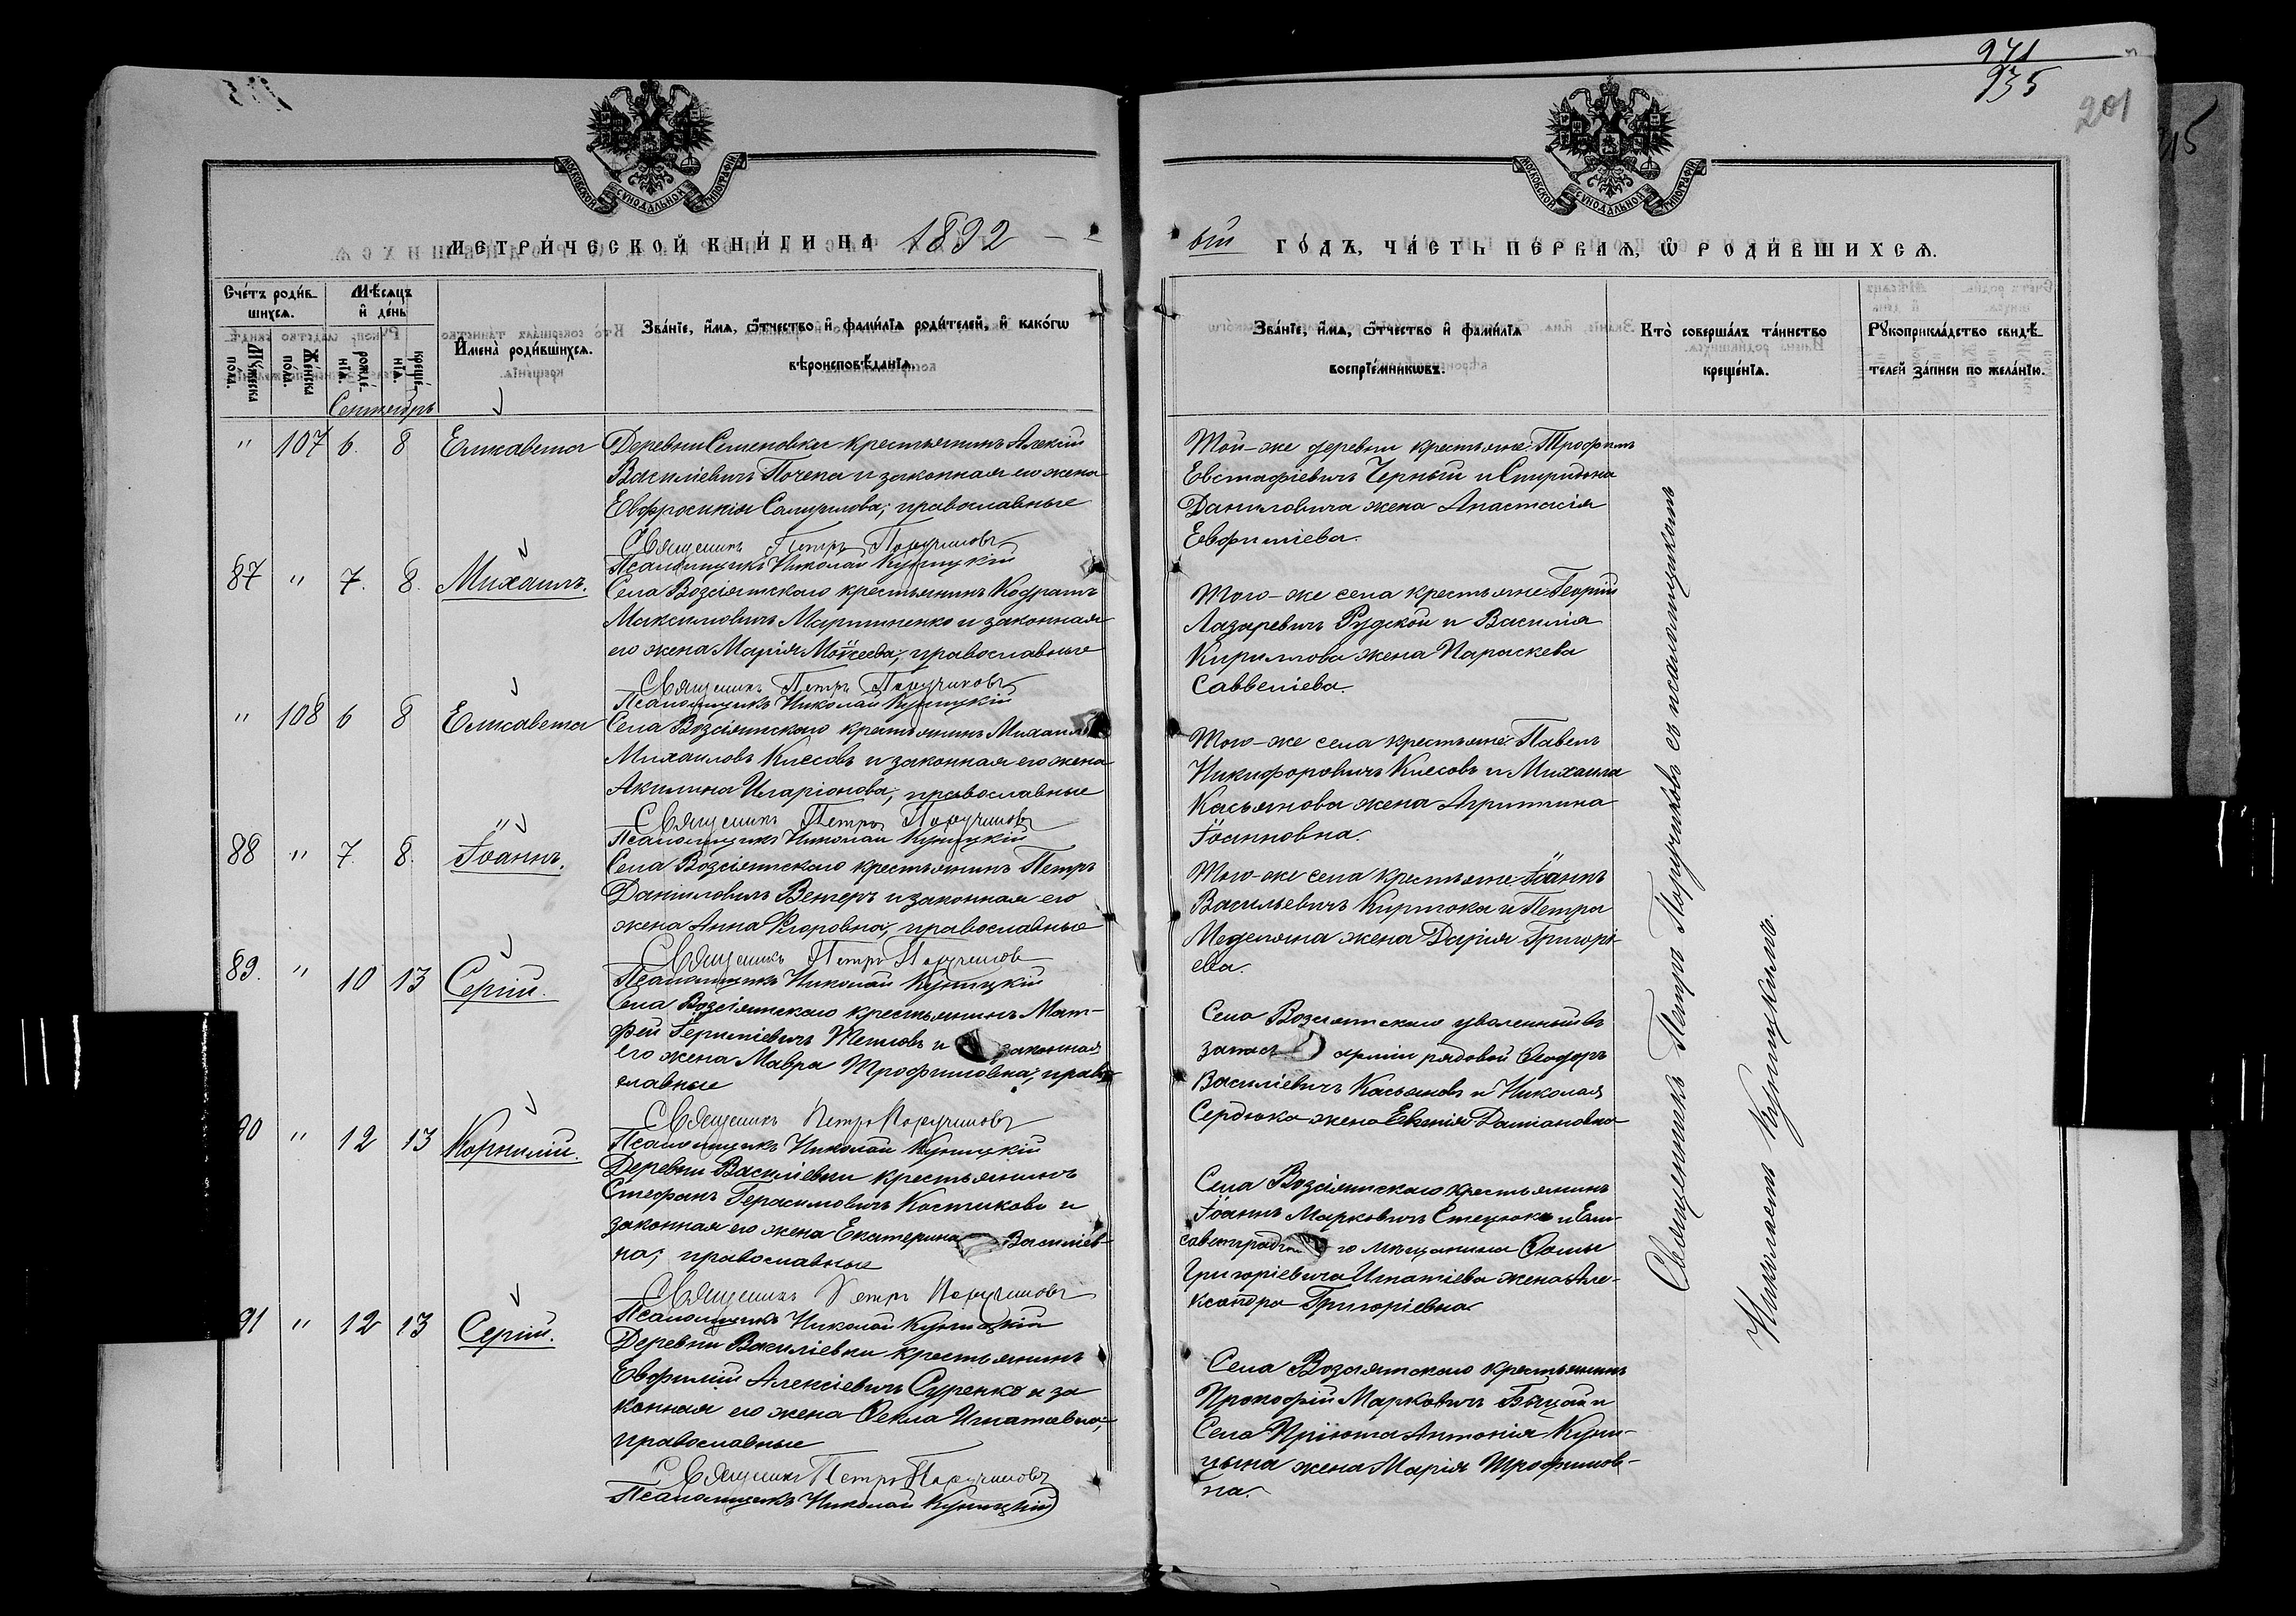 971
935
201
15
МОСКОВСКОЙ СѴНОДАЛЬНОЙ ТИПОГРАФІИ
МОСКОВСКОЙ СѴНОДАЛЬНОЙ ТИПОГРАФІИ
МЕТРИ́ЧЕСКОЙ КНИ́ГИ НА 1892
ый ГО́ДЪ, ЧА́СТЬ ПЕ́РВАЯ, Ѡ РОДИ́ВШИХСЯ.
Сче́тъ роди́в-
шихся.
Мѣ́сяцъ
и҆ де́нь
Му́жеска по́ла.
Же́нска по́ла.
рожде́нїя.
креще́нїя.
И҆мена̀ роди́вшихся.
Зва́нїе, и҆́мя, ѻ҆́тчество и҆ фами́лїя роди́телей, и҆ како́гѡ
вѣроисповѣ́данїя.
Зва́нїе, и҆́мя, ѻ҆́тчество и҆ фами́лїя
воспрїе́мникѡвъ.
Кто̀ соверша́лъ та́инство
креще́нїя.
Рꙋкоприкла́дство свидѣ́-
телей за́писи по жела́нїю.
Сентябрь
" 107 6. 8 Елисавета
Деревни Семеновки крестьянинъ Алексій
Василіевичъ Почепа и законная его жена
Евфросинія Самуилова; православные
Священникъ Петръ Поручиковъ
Псаломщикъ Николай Куницкій
Той-же деревни крестьяне: Трофимъ
Евстафіевичъ Черный и Спиридона
Даниловича жена Анастасія
Евфиміева.
87 " 7. 8. Михаилъ.
Села Возсіятского крестьянинъ Кодратъ
Максимовичъ Мартиненко и законная
его жена Марія Моѵсеева; православные
Священникъ Петръ Поручиковъ
Псаломщикъ Николай Куницкій
Того-же села крестьяне: Георгій
Лазаревичъ Рудской и Василія
Кириллова жена Параскева
Саввеліева.
" 108 6 8 Елисавета
Села Возсіятского крестьянинъ Михаилъ
Михаиловъ Киссовъ и законная его жена
Акилина Иларіонова; православные
Священникъ Петръ Поручиковъ
Псаломщикъ Николай Куницкій
Того-же села крестьяне: Павелъ
Никифоровичъ Киссовъ и Михаила
Касьянова жена Агриппина
Іоанновна.
88 " 7. 8. Іоаннъ.
Села Возсіятского крестьянинъ Петръ
Даніиловичъ Венгеръ и законная его
жена Анна Егоровна; православные
Священникъ Петръ Поручиковъ
Псаломщикъ Николай Куницкій
Того-же села крестьяне: Іоаннъ
Васильевичъ Киртока и Петра
Меделяна жена Дарія Григорі-
ева.
89. " 10 13 Сергій.
Села Возсіятского крестьянинъ Мат-
фей и законная
его жена Мавра Трофимовна; право-
славные
Священникъ Петръ Поручиковъ
Псаломщикъ Николай Куницкій
Села Возсіятского уволенный въ
запасъ арміи рядовой Ѳеодоръ
Василіевичъ Касьяновъ и Николая
Сердюка жена Евгенія Даміановна
90 " 12 13 Корнилій.
Деревни Василіевки крестьянинъ
Стефанъ Герасимовичъ Костиковъ и
законная его жена Екатерина Василіев-
на; православные
Священникъ Петръ Поручиковъ
Псаломщикъ Николай Куницкій
Села Возсіятского крестьянинъ
Іоаннъ Марковичъ Стецюкъ и Ели-
саветград го мѣщанина Ѳомы
Григоріевича Игнатіева жена Але-
ксандра Григоріевна
91 " 12 13 Сергій.
Деревни Василіевки крестьянинъ
Евфимій Алексіевичъ Суренко и за
конная его жена Ѳекла Игнатовна;
православные
Священникъ Петръ Поручиковъ
Псаломщикъ Николай Куницкій
Села Возсіятского крестьянинъ
Прокофій Марковичъ Бацай и
Села Пріюта Антонія Куни-
цына жена Марія Трофимов-
на.
Священникъ Петръ Поручиковъ съ псаломщикомъ
Николаемъ Куницкимъ.